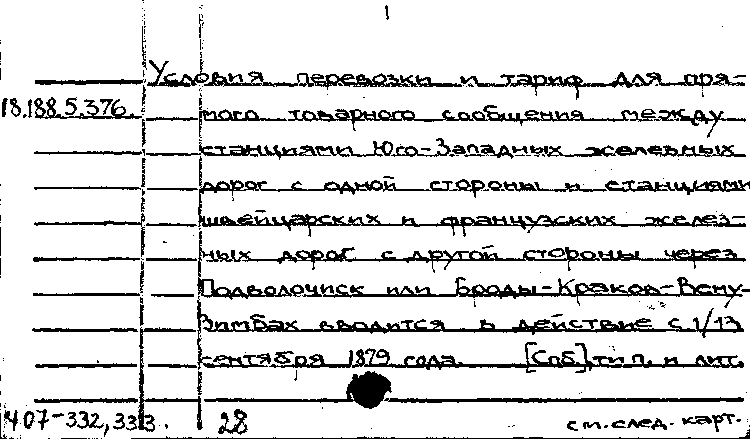 1
Условия перевозки и тариф для пря-
18.188.5.376. мого товарного сообщения между
станциями Юго-Западных железных
дорог с одной стороны и станциями
швейцарских и французских желез-
ных дорог с другой стороны через
Подволочиск или Броды-Краков-Вену-
Зимбах вводится в действие с 1/13
сентября 1879 года. [Спб], тип. и лит.
407-332,333. 28 см. след. карт.